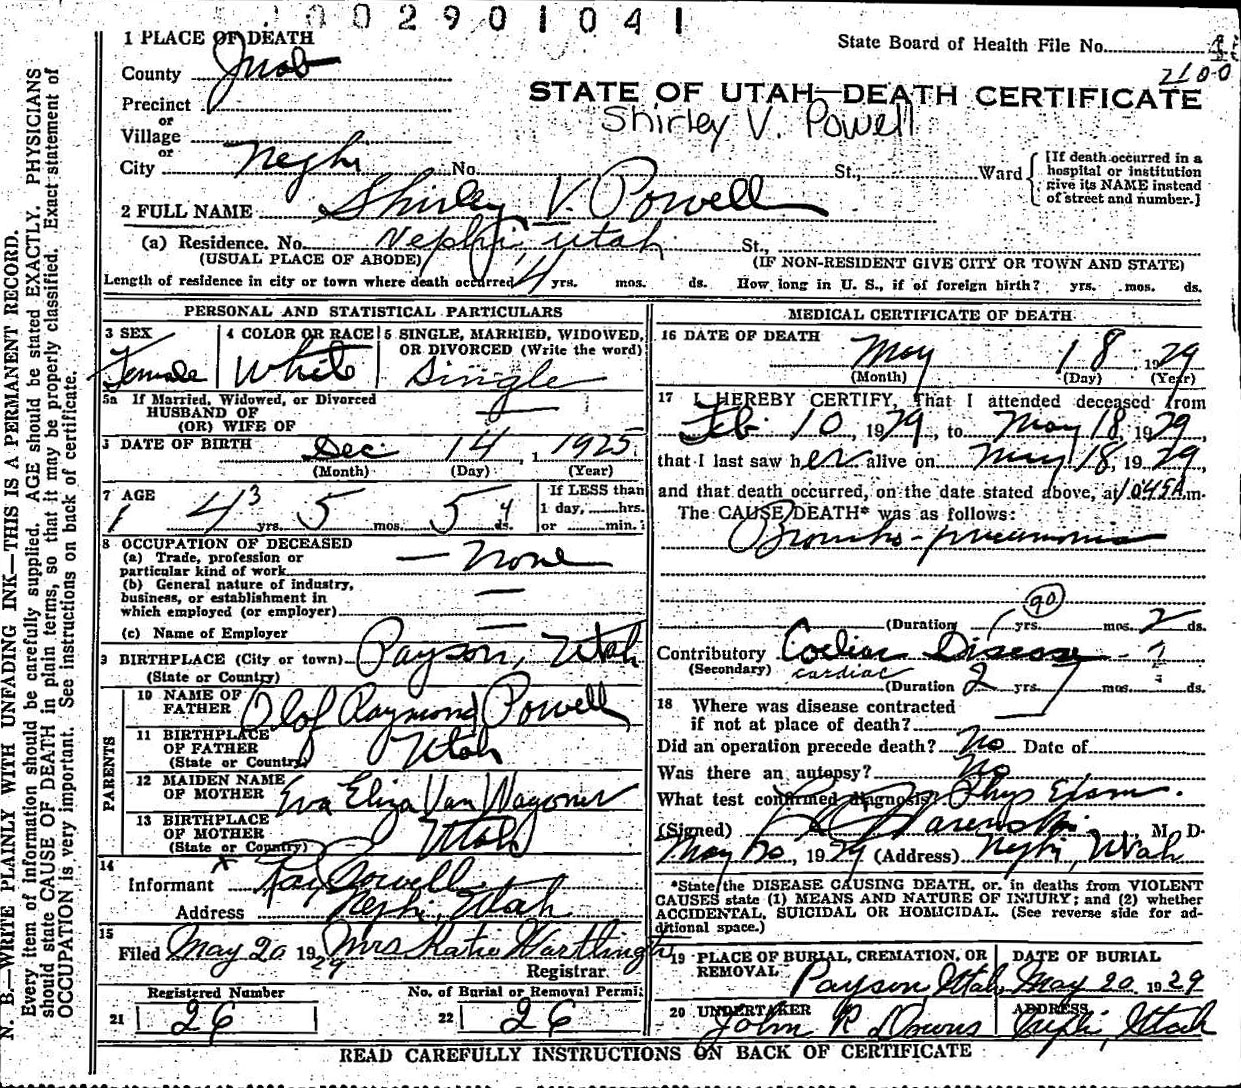 0 0 2 9 0 1 0 4 1
1 PLACE OF DEATH
State Board of Health File No.
County Juab
2100
Precinct
or
Village
or
City Nephi No. St., Ward
[If death occurred in a hospital or institution give its NAME instead of street and number.]
STATE OF UTAH—DEATH CERTIFICATE
Shirley V. Powell
2 FULL NAME Shirley V. Powell
(a) Residence. No. Nephi, Utah St.,
(USUAL PLACE OF ABODE) (IF NON-RESIDENT GIVE CITY OR TOWN AND STATE)
Length of residence in city or town where death occurred, yrs. mos. ds. How long in U. S., if of foreign birth? yrs. mos. ds.
PERSONAL AND STATISTICAL PARTICULARS
3 SEX Female
4 COLOR OR RACE White
5 SINGLE, MARRIED, WIDOWED, OR DIVORCED (Write the word) Single
5a If Married, Widowed, or Divorced
HUSBAND OF
(OR) WIFE OF
DATE OF BIRTH Dec. 14, 1925
(Month) (Day) (Year)
7 AGE 4 3 yrs. 5 mos. 5 4 ds.
If LESS than
1 day, hrs.
or min.
8 OCCUPATION OF DECEASED
(a) Trade, profession or
particular kind of work — none
(b) General nature of industry,
business, or establishment in
which employed (or employer)
(c) Name of Employer
9 BIRTHPLACE (City or town) Payson, Utah
(State or Country)
PARENTS
10 NAME OF FATHER Olof Raymond Powell
11 BIRTHPLACE OF FATHER Utah
(State or Country)
12 MAIDEN NAME OF MOTHER Eva Eliza Van Wagoner
13 BIRTHPLACE OF MOTHER Utah
(State or Country)
14
Informant Ray Powell
Address Nephi, Utah
15
Filed May 20 1929 Mrs Katie
Registrar.
Registered Number
21 26
No. of Burial or Removal Permit
22 26
MEDICAL CERTIFICATE OF DEATH
16 DATE OF DEATH May 18, 1929
(Month) (Day) (Year)
17 I HEREBY CERTIFY, That I attended deceased from
Feb. 10, 1929, to May 18, 1929,
that I last saw her alive on May 18, 1929,
and that death occurred, on the date stated above, at 1045A m.
The CAUSE DEATH* was as follows:
Broncho-pneumonia
90
(Duration yrs. mos. 2 ds.
Contributory Coeliac Disease - ?
(Secondary) cardiac
(Duration 2 yrs. mos. ds.
18 Where was disease contracted
if not at place of death?
Did an operation precede death? No Date of
Was there an autopsy? No
What test confirmed diagnosis? Phys Exam.
(Signed) M. D.
May 20, 1929 (Address) Nephi, Utah
*State the DISEASE CAUSING DEATH, or. in deaths from VIOLENT
CAUSES state (1) MEANS AND NATURE OF INJURY; and (2) whether
ACCIDENTAL, SUICIDAL OR HOMICIDAL. (See reverse side for ad-
ditional space.)
19 PLACE OF BURIAL, CREMATION, OR REMOVAL Payson, Utah
DATE OF BURIAL May 20, 1929
20 UNDERTAKER John R Downs
ADDRESS Nephi, Utah
READ CAREFULLY INSTRUCTIONS ON BACK OF CERTIFICATE
N. B.—WRITE PLAINLY WITH UNFADING INK—THIS IS A PERMANENT RECORD.
Every item of information should be carefully supplied. AGE should be stated EXACTLY. PHYSICIANS
should state CAUSE OF DEATH in plain terms, so that it may be properly classified. Exact statement of
OCCUPATION is very important. See instructions on back of certificate.